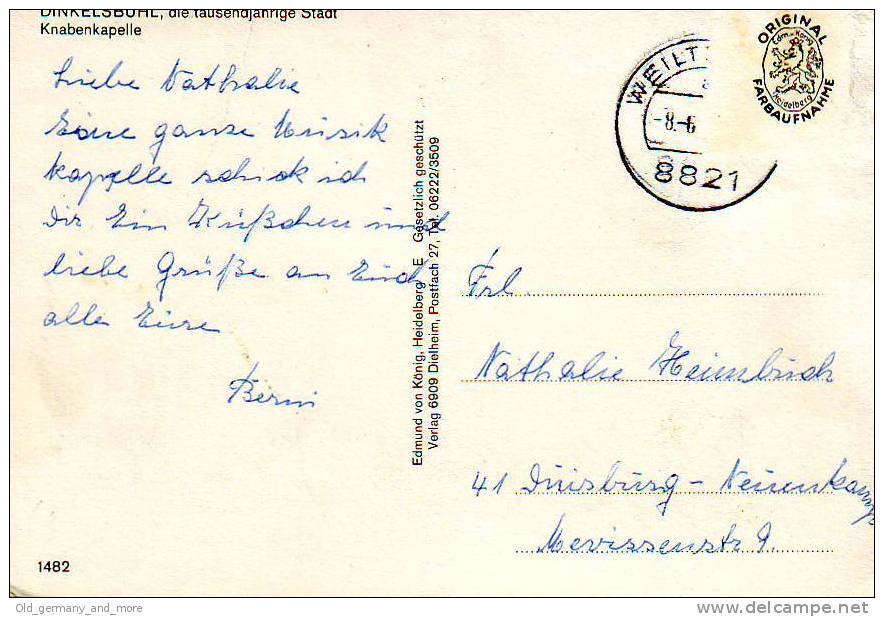 DINKELSBÜHL, die tausendjährige Stadt
Knabenkapelle
Liebe Nathalie
Eine ganze Musik
kapelle schick ich
Dir Ein Küßchen und
liebe Grüße an Euch
alle Eure
Berni
1482
Edmund von König, Heidelberg E Gesetzlich geschützt
Verlag 6909 Dielheim, Postfach 27, Tel. 06222/3509
WEILT
-8.-6
8821
ORIGINAL
Edm. v. König
Heidelberg
FARBAUFNAHME
Frl.
Nathalie Heimbuch
41 Duisburg - Neuenkamp
Mevissenstr 9.
Old_germany_and_more
delcampe.net